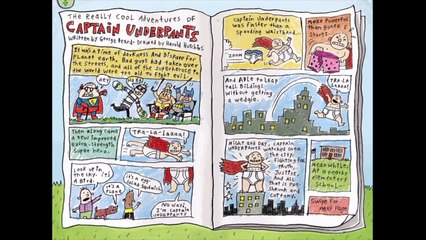 The Really Cool Adventures of
CAPTAIN UNDERPANTS
Written by George Beard · Drawed by Harold Hutchins
It was a time of darkness and Dispare for
Planet earth. Bad guys had taken over
the streets, and all of the superheros to
the world were too old to fight evil.
HEY
Then along came
a new improved
extra-strength
Super hero.
TRA-LA-Laaaa!
Look up in
the sky. it's
A Bird.
it's a
it's a egg
salad Sandwich
No Way!
I'm Captain
UNDERPANTS
Captain Underpants
was Faster than a
speeding waistband...
ZOOM
More Powerful
than Boxer
Shorts
And ABLE to Leap
tall Bildings
Without getting
a wedgie.
TRA-LA
Laaaa!
Night and Day,
CAPTAIN
UNDERPANTS
watched over
the city,
fighting for
truth,
Justice,
and All
that is Pre-
Shrunk and
Cottony.
Meanwhile,
At a nearby
elementery
School...
Swipe for
next Page!